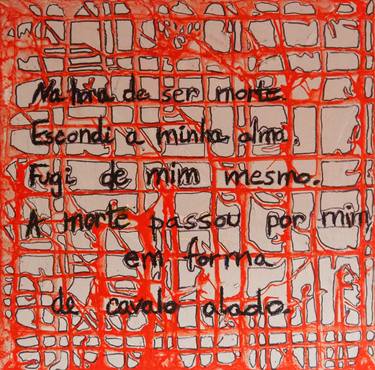 Na hora de ser morte.
Escondi a minha alma.
Fugi de mim mesmo.
A morte passou por mim
em forma
de cavalo alado.